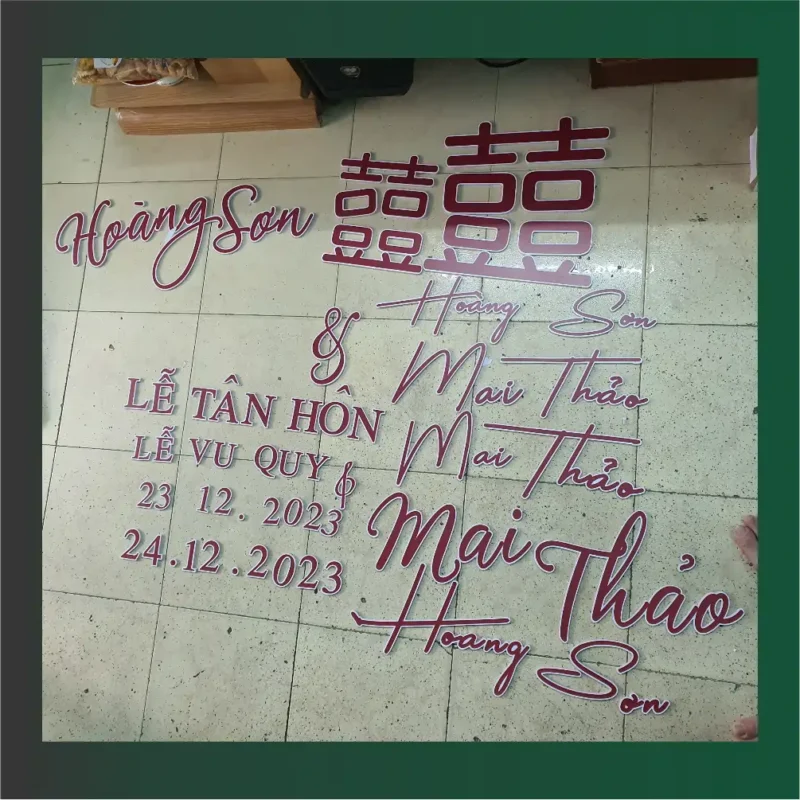 Hoàng Sơn
囍 囍
Hoàng Sơn
&
Mai Thảo
LỄ TÂN HÔN
Mai Thảo
LỄ VU QUY &
23 12. 2023
24.12.2023
Mai Thảo
Hoang Sơn